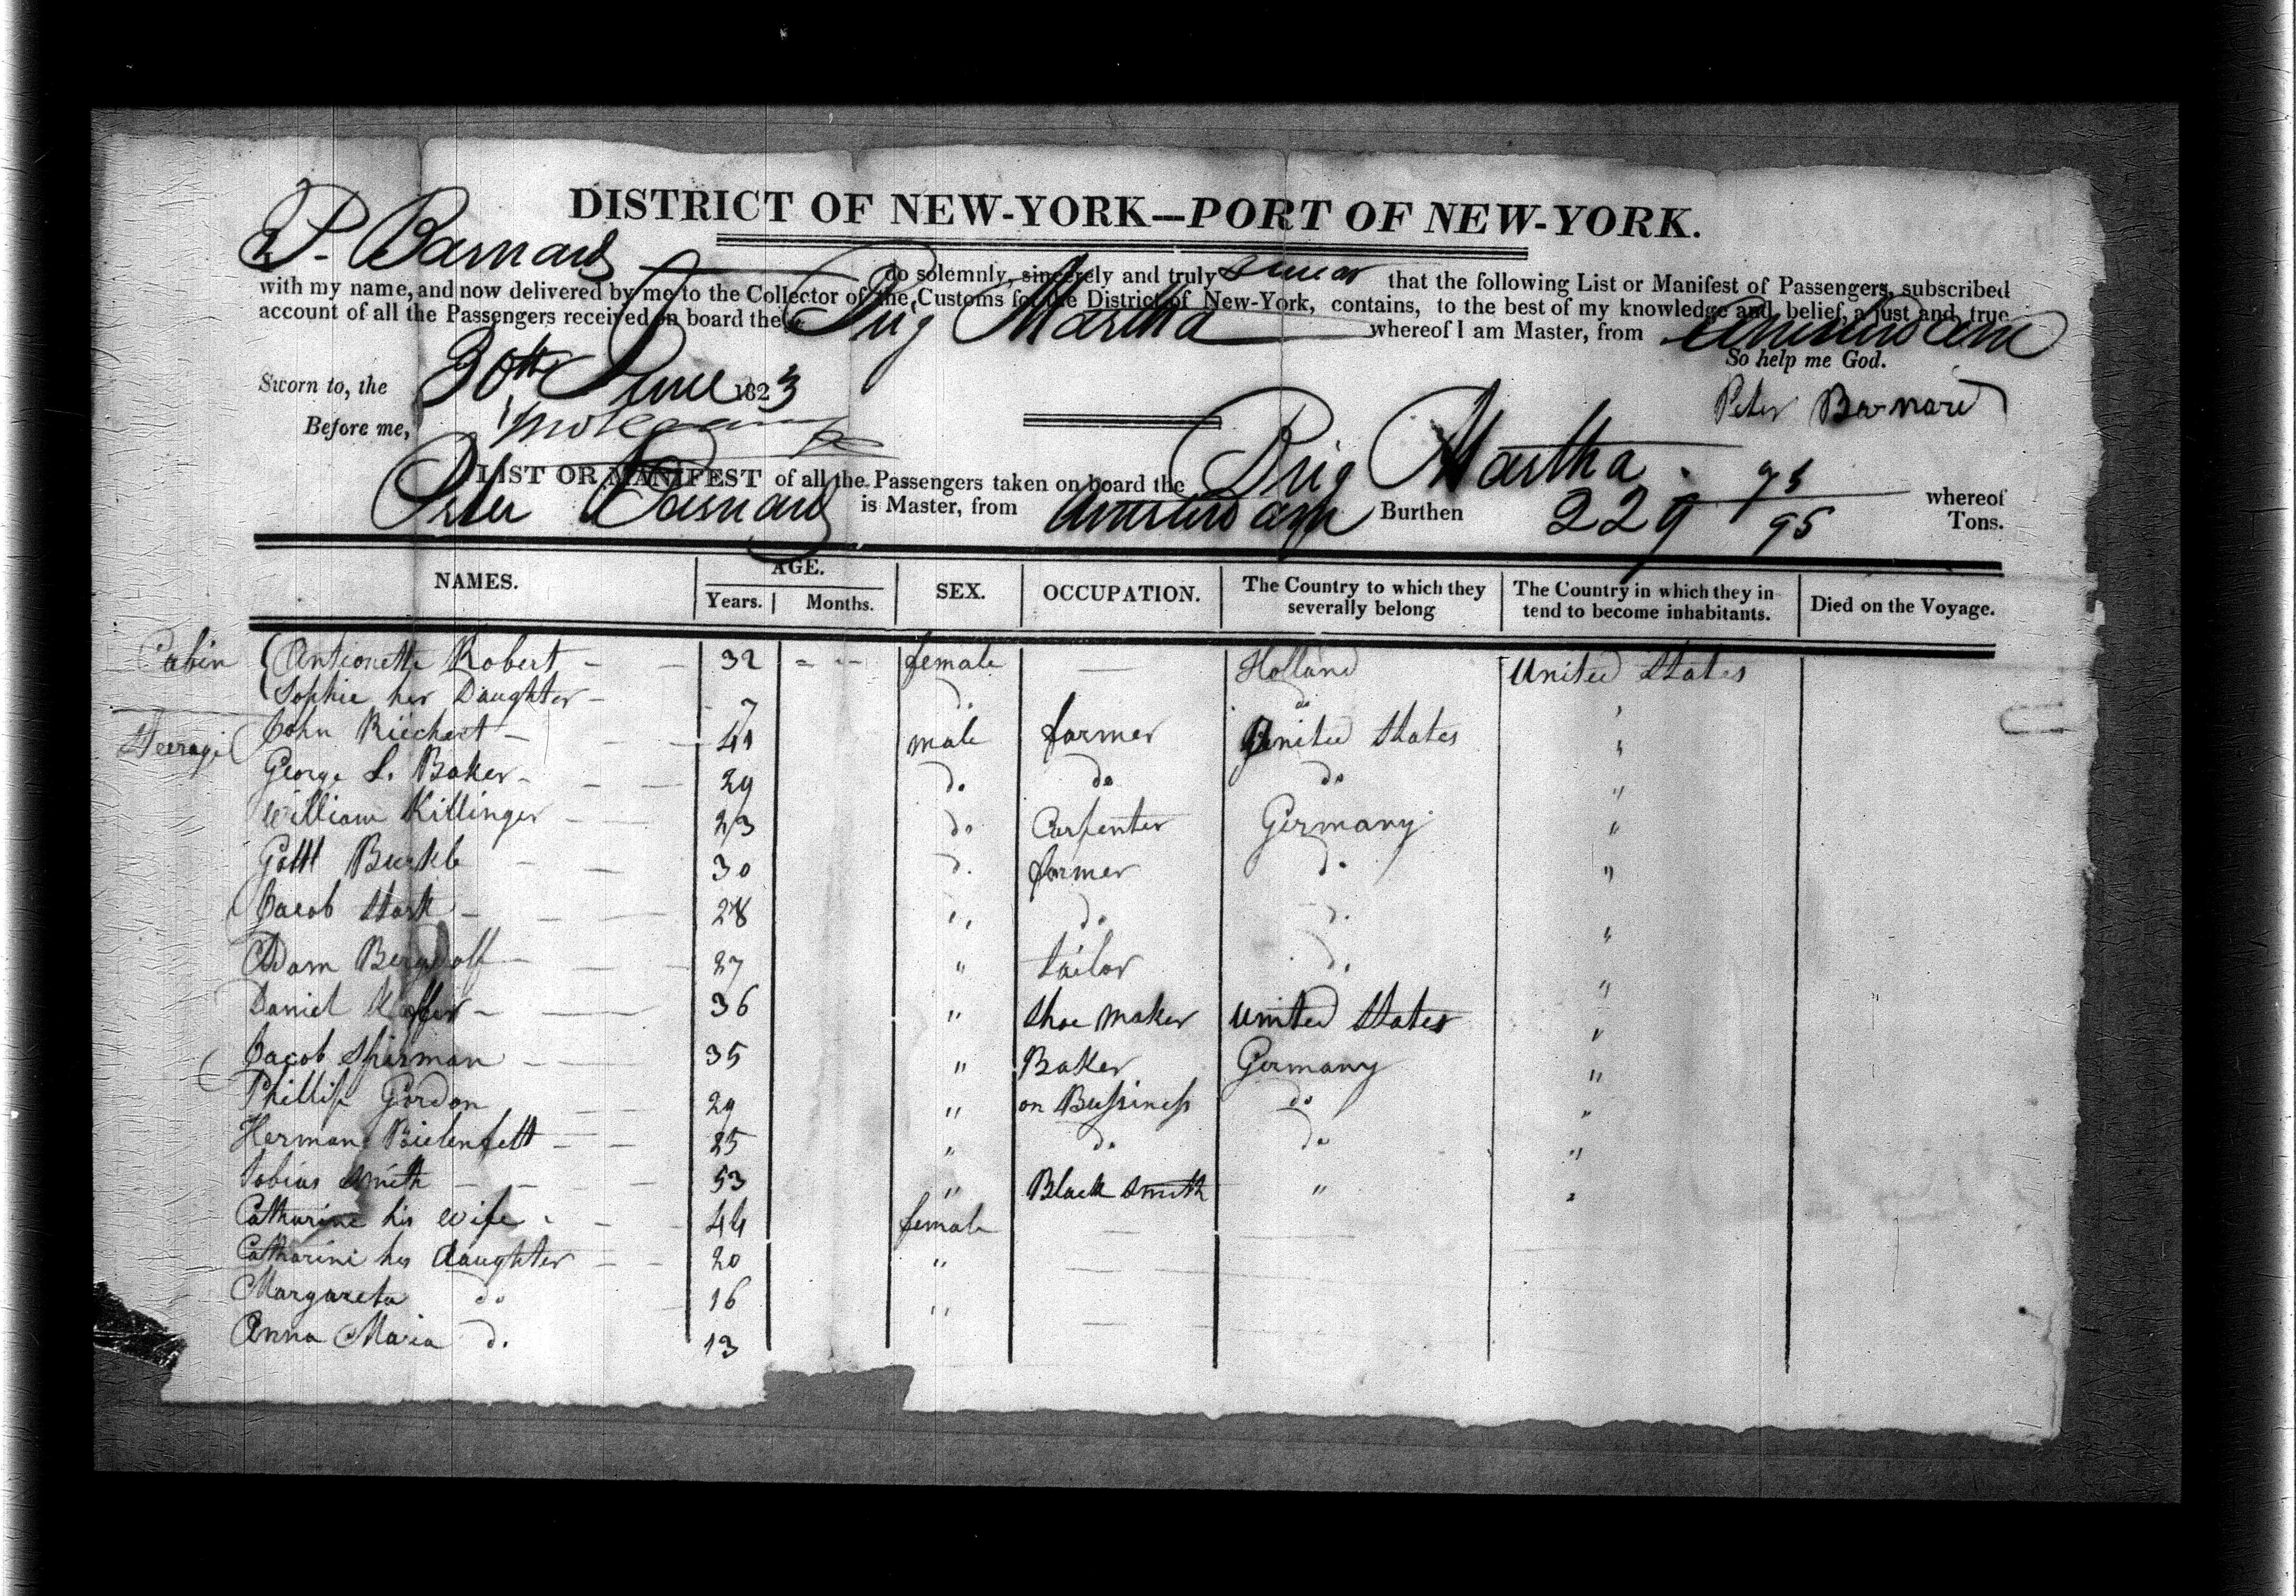 DISTRICT OF NEW-YORK—PORT OF NEW-YORK.
I, P. Barnard do solemnly, sincerely and truly swear that the following List or Manifest of Passengers, subscribed
with my name, and now delivered by me to the Collector of the Customs for the District of New-York, contains, to the best of my knowledge and belief, a just and true
account of all the Passengers received on board the Brig Martha whereof I am Master, from Amsterdam
So help me God.
Sworn to, the 30th June 1823
Peter Barnard
Before me,
LIST OR MANIFEST of all the Passengers taken on board the Brig Martha whereof
Peter Barnard is Master, from Amsterdam Burthen 229 73/95 Tons.
NAMES. AGE. Years. Months. SEX. OCCUPATION. The Country to which they severally belong The Country in which they intend to become inhabitants. Died on the Voyage.
Cabin Antionette Robert 32 female — Holland United States
Sophie her Daughter 7 do do "
Steerage John Riechert 41 male farmer United States "
George L. Baker 29 do do do "
William Killinger 23 do Carpenter Germany "
Gottl Burkle 30 do farmer do "
Jacob Stark 28 " do do "
Adam Bergdoll 27 " tailor do "
Daniel 36 " Shoe maker United States "
Jacob Spirman 35 " Baker Germany "
Phillip Gordon 29 " on Bussiness do "
Herman Bielenfelt 25 " do do "
Tobias Smith 53 " Black Smith " "
Catharine his wife 44 female —
Catharine his daughter 20 " —
Margareta do 16 " —
Anna Maria do 13